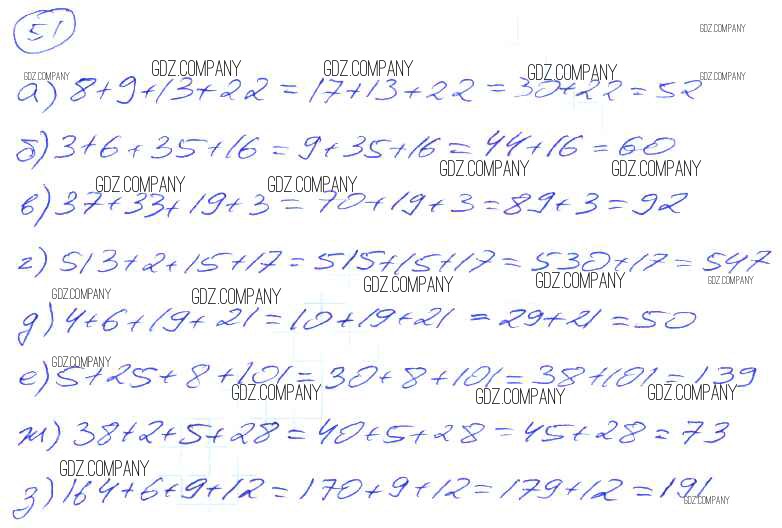 51
GDZ.COMPANY
GDZ.COMPANY GDZ.COMPANY GDZ.COMPANY GDZ.COMPANY GDZ.COMPANY
а) 8+9+13+22 = 17+13+22 = 30+22 = 52
б) 3+6+35+16 = 9+35+16 = 44+16 = 60
GDZ.COMPANY GDZ.COMPANY
GDZ.COMPANY GDZ.COMPANY
в) 37+33+19+3 = 70+19+3 = 89+3 = 92
г) 513+2+15+17 = 515+15+17 = 530+17 = 547
GDZ.COMPANY GDZ.COMPANY GDZ.COMPANY
GDZ.COMPANY GDZ.COMPANY
д) 4+6+19+21 = 10+19+21 = 29+21 = 50
GDZ.COMPANY
е) 5+25+8+101 = 30+8+101 = 38+101 = 139
GDZ.COMPANY GDZ.COMPANY GDZ.COMPANY
ж) 38+2+5+28 = 40+5+28 = 45+28 = 73
GDZ.COMPANY
з) 164+6+9+12 = 170+9+12 = 179+12 = 191
GDZ.COMPANY